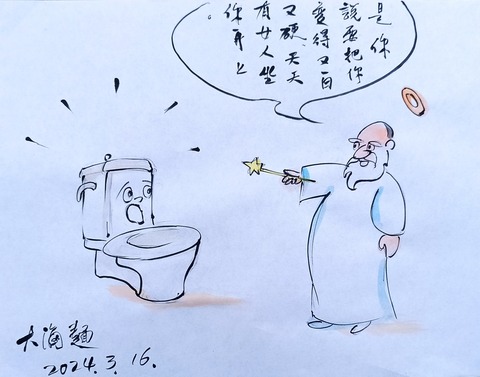 是你
說要把你
變得又白
又硬、天天
有女人坐
你身上。
大滷麵
2024.3.16.